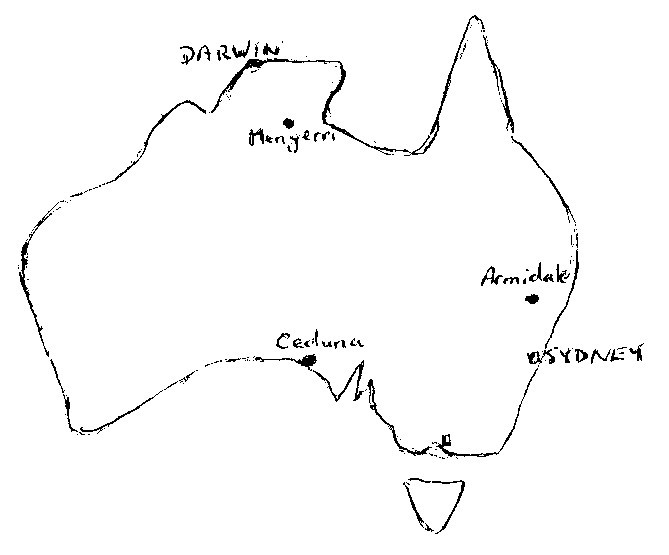 DARWIN
Menyerri
Armidale
Ceduna
SYDNEY